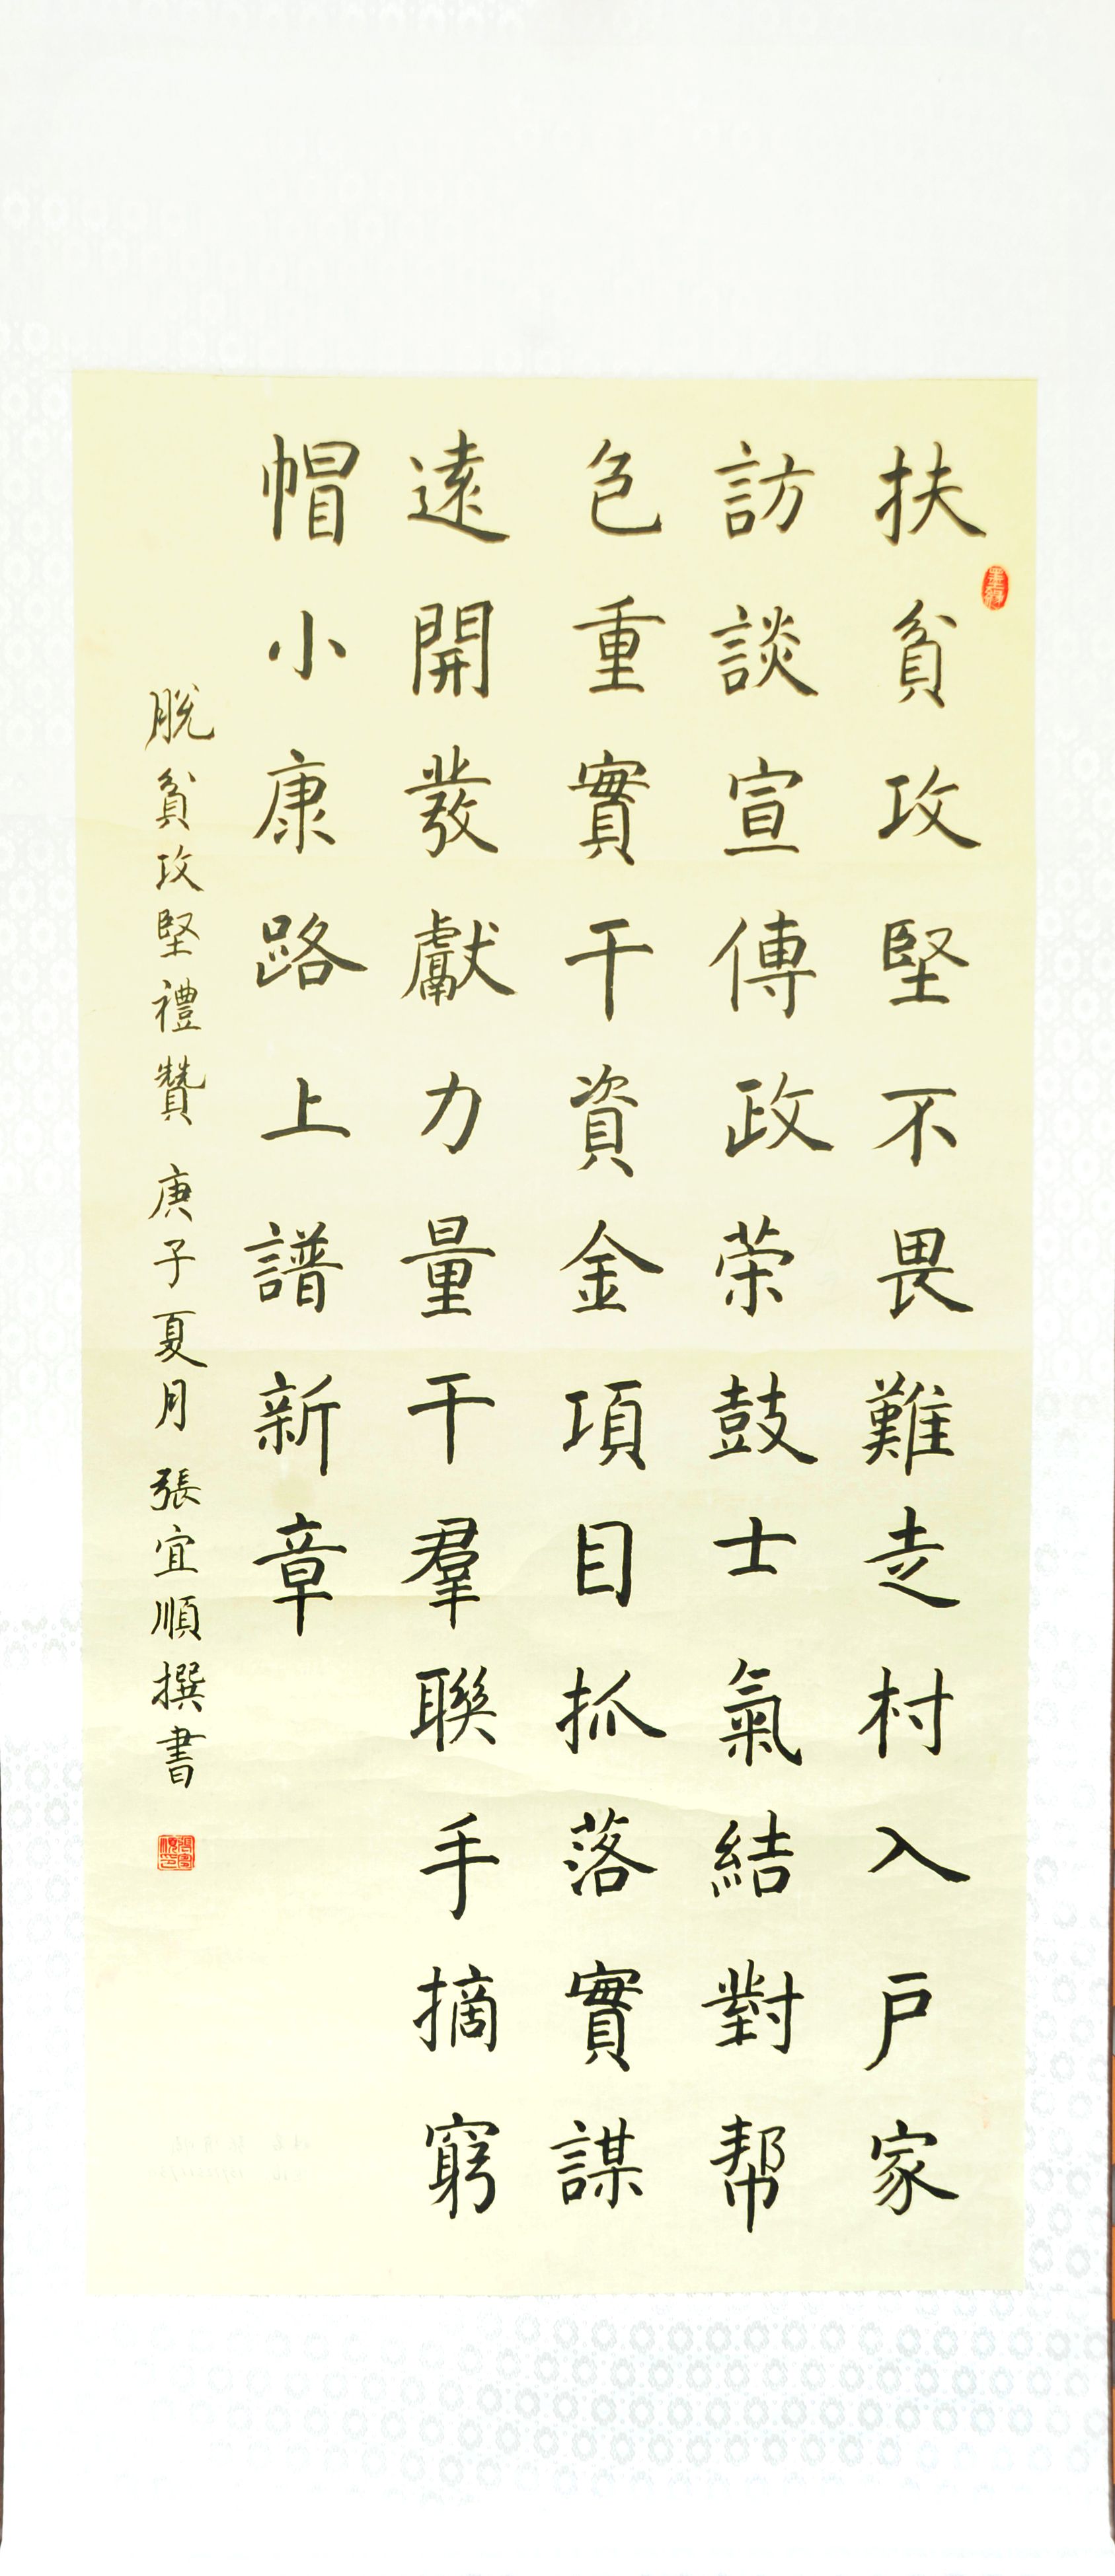 扶貧攻堅不畏難走村入户家
訪談宣傳政荣鼓士氣結對帮
色重實干資金項目抓落實謀
遠開發獻力量干羣聯手摘窮
帽小康路上譜新章
脱貧攻堅禮贊 庚子夏月 張宜順撰書